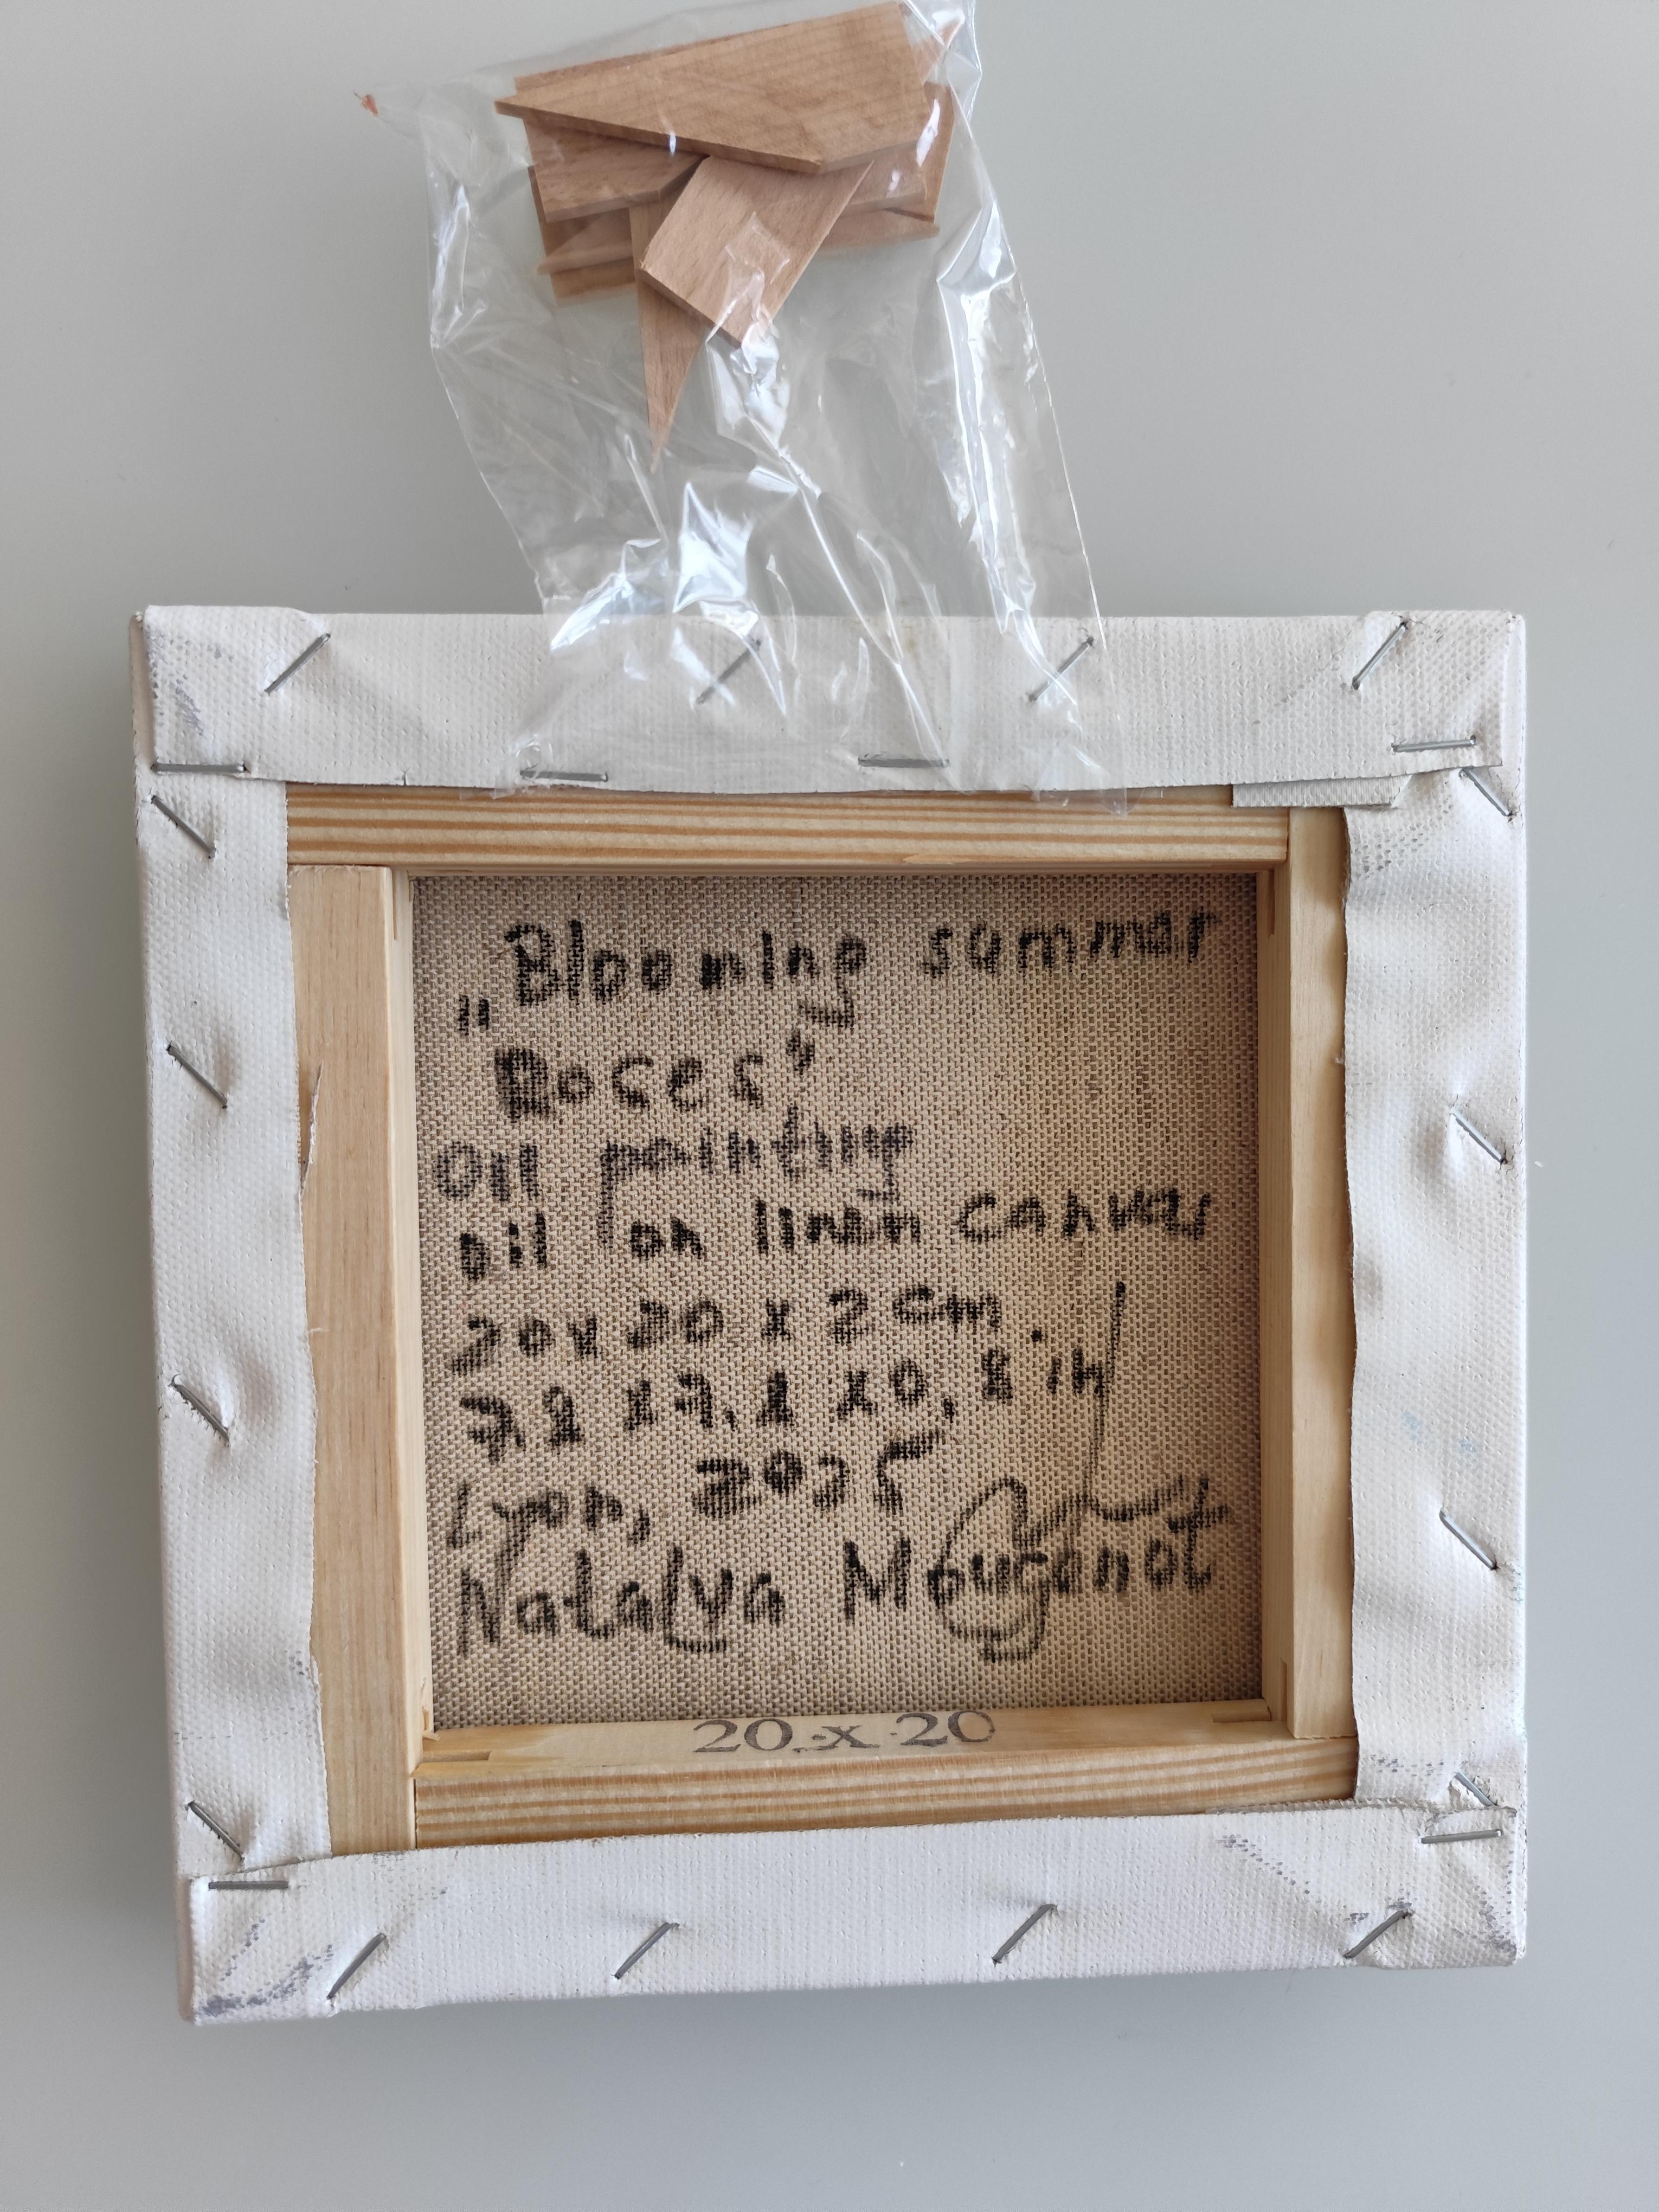 „Blooming summer
Roses”
Oil painting
oil on linen canvas
20x20 x 2 cm.
7,8 x 7,8 x 0,8 in
Lyon, 2025
Natalya Mougenot
20 x 20